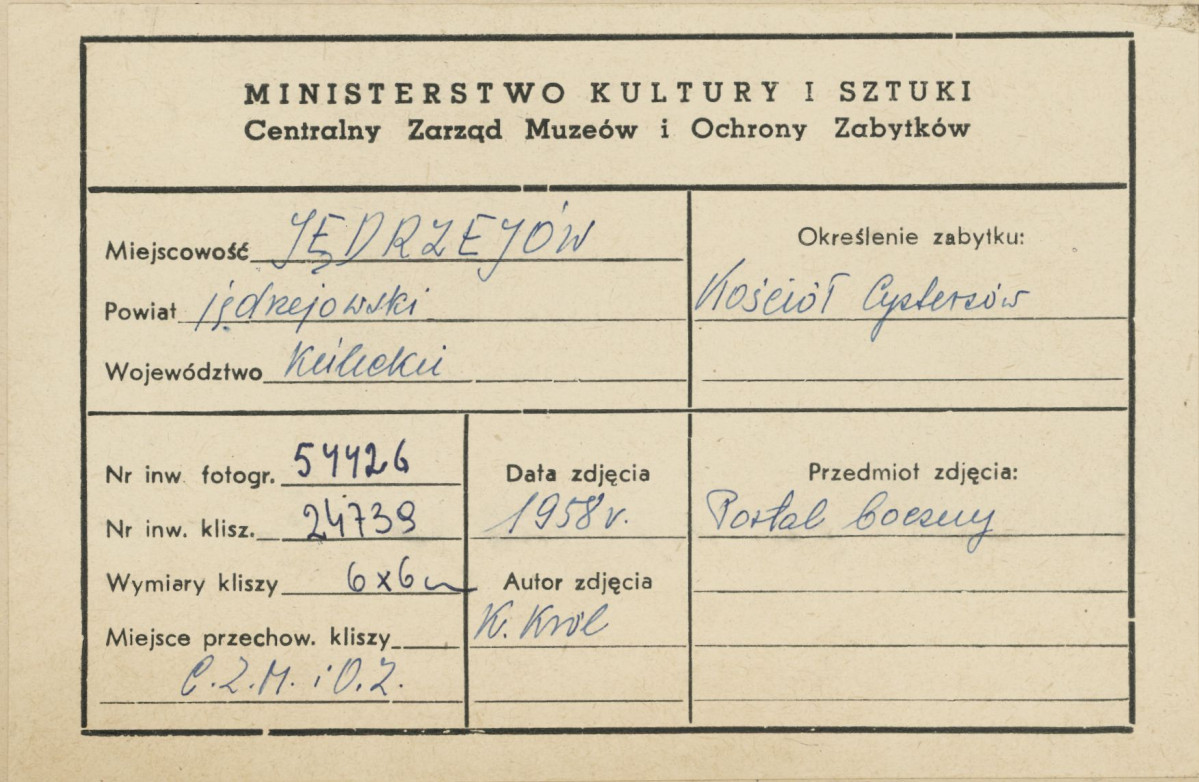 MINISTERSTWO KULTURY I SZTUKI
Centralny Zarząd Muzeów i Ochrony Zabytków
Miejscowość JĘDRZEJÓW
Powiat jędrzejowski
Województwo Kieleckie
Określenie zabytku:
Kościół Cystersów
Nr inw. fotogr. 54426
Nr inw. klisz. 24739
Wymiary kliszy 6x6
Miejsce przechow. kliszy
C.Z.M. i O.Z.
Data zdjęcia
1958 r.
Autor zdjęcia
K. Król
Przedmiot zdjęcia:
Portal boczny